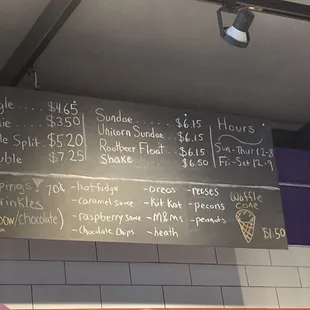 gle .... $4.65
ie .... $3.50
le Split . $5.20
uble $7.25
Sundae ...... $6.15
Unicorn Sundae .. $6.15
Rootbeer Float ... $6.15
Shake .... $6.50
Hours
Sun-Thur 12-8
Fri-Sat 12-9
pings 70¢
rinkles
bow/chocolate)
-hot fudge
-caramel sauce
-raspberry sauce
-Chocolate Chips
-oreos
-Kit Kat
-M&Ms
-heath
-reeses
-pecons
-peanuts
Waffle
cone
$1.50